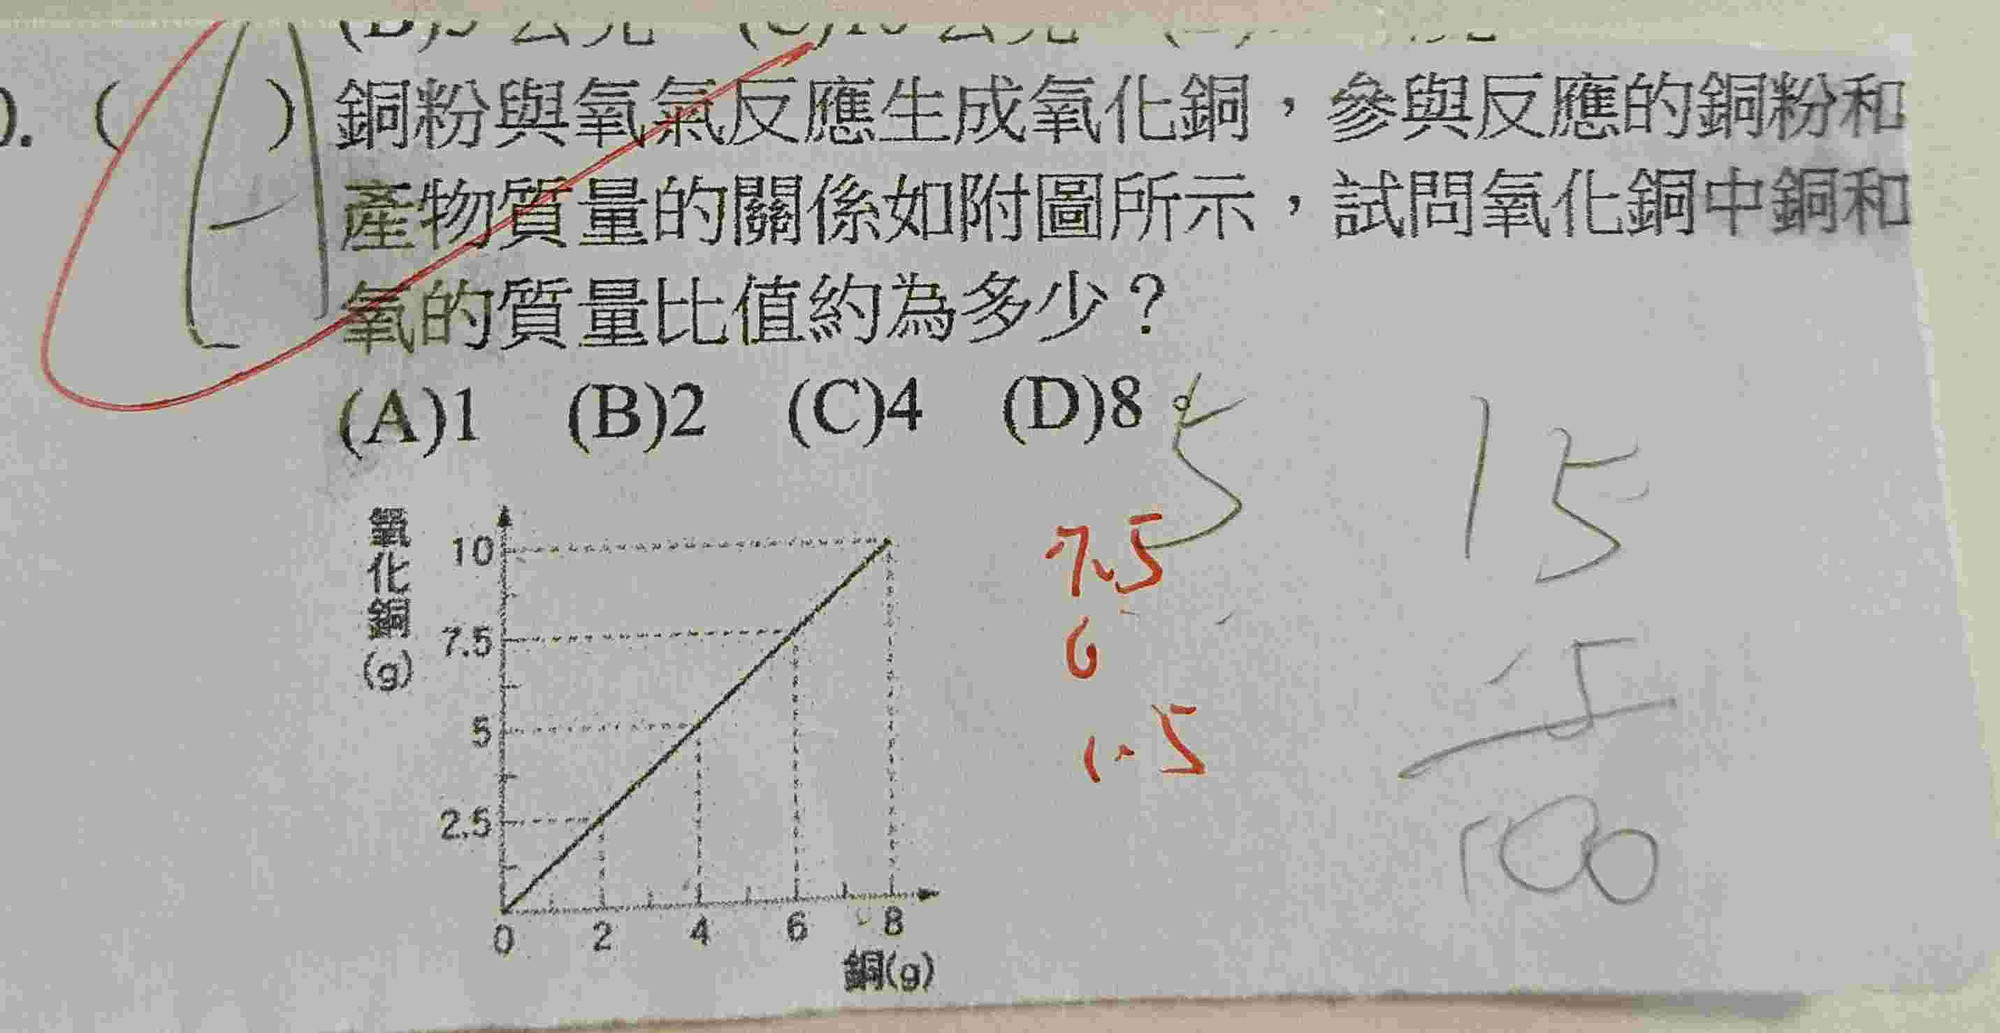 ). (A) 銅粉與氧氣反應生成氧化銅，參與反應的銅粉和
產物質量的關係如附圖所示，試問氧化銅中銅和
氧的質量比值約為多少？
(A)1 (B)2 (C)4 (D)8。
氧化銅(g)
10
7.5
5
2.5
0 2 4 6 8
銅(g)
5
7.5
6
1.5
15
100